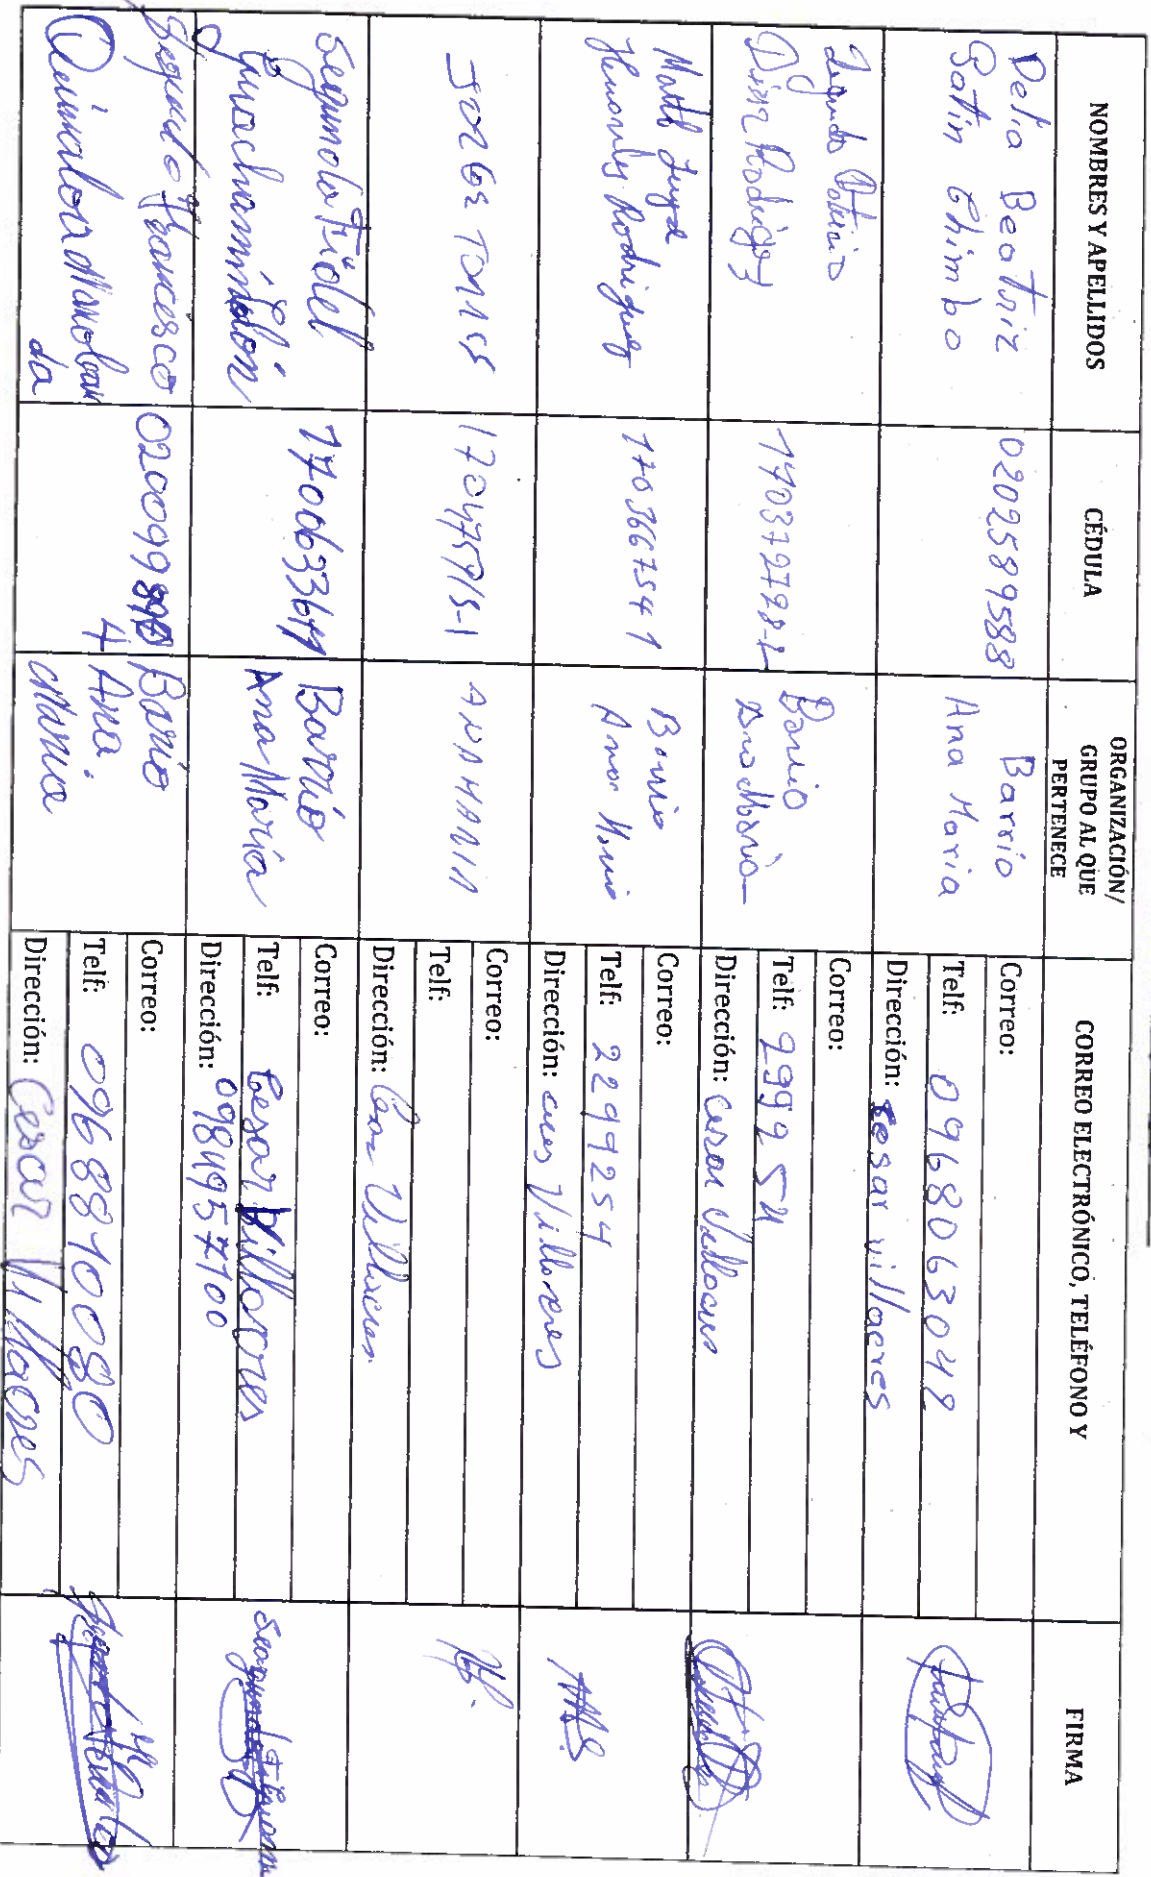 NOMBRES Y APELLIDOS
CÉDULA
ORGANIZACIÓN/
GRUPO AL QUE
PERTENECE
CORREO ELECTRÓNICO, TELÉFONO Y
FIRMA
Delia Beatriz
Batin Chimbo
0202589588
Barrio
Ana Maria
Correo:
Telf: 0968063042
Dirección: Cesar villacres
Segundo Patricio
Diaz Rodriguez
Barrio
Ana Maria
Correo:
Telf: 299254
Dirección: Cesar Villacres
Rodriguez
1703667541
Barrio
Ana Maria
Correo:
Telf: 2299254
Dirección: Villacres
JORGE TORRES
ANA MARIA
Correo:
Telf:
Dirección: Villacres
Segundo Fidel
170063364
Barrio
Ana María
Correo:
Telf: Cesar Villacres
Dirección: 0984957100
Segundo Francisco
da
Barrio
Ana.
Maria
Correo:
Telf: 0968810080
Dirección: Cesar Villacres